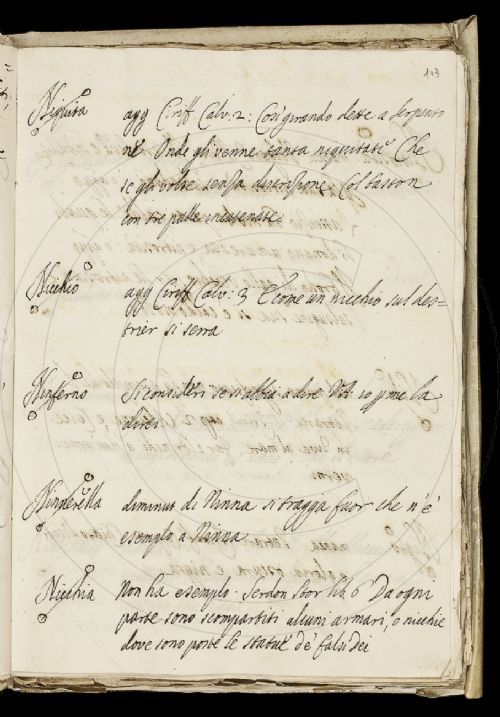 103
Niquita agg Ciriff Calv: 2: Così girando dette a serpento
ne Onde gli venne tanta niquitate Che
se gli volse senza descrizione Col baston
con tre palle incatenate
Nicchio agg Ciriff Calv: 3 E come un nicchio sul des=
trier si serra
Ninferno Si consideri se si abbia a dire V.A. io p me la
direi
Ninnerella diminut di Ninna si tragga fuor che n'è
esemplo a Ninna
Nicchia Non ha esemplo: Serdon stor lib 6 Da ogni
parte sono scompartiti alcuni armari, o nicchie
dove sono poste le statue de falsi dei